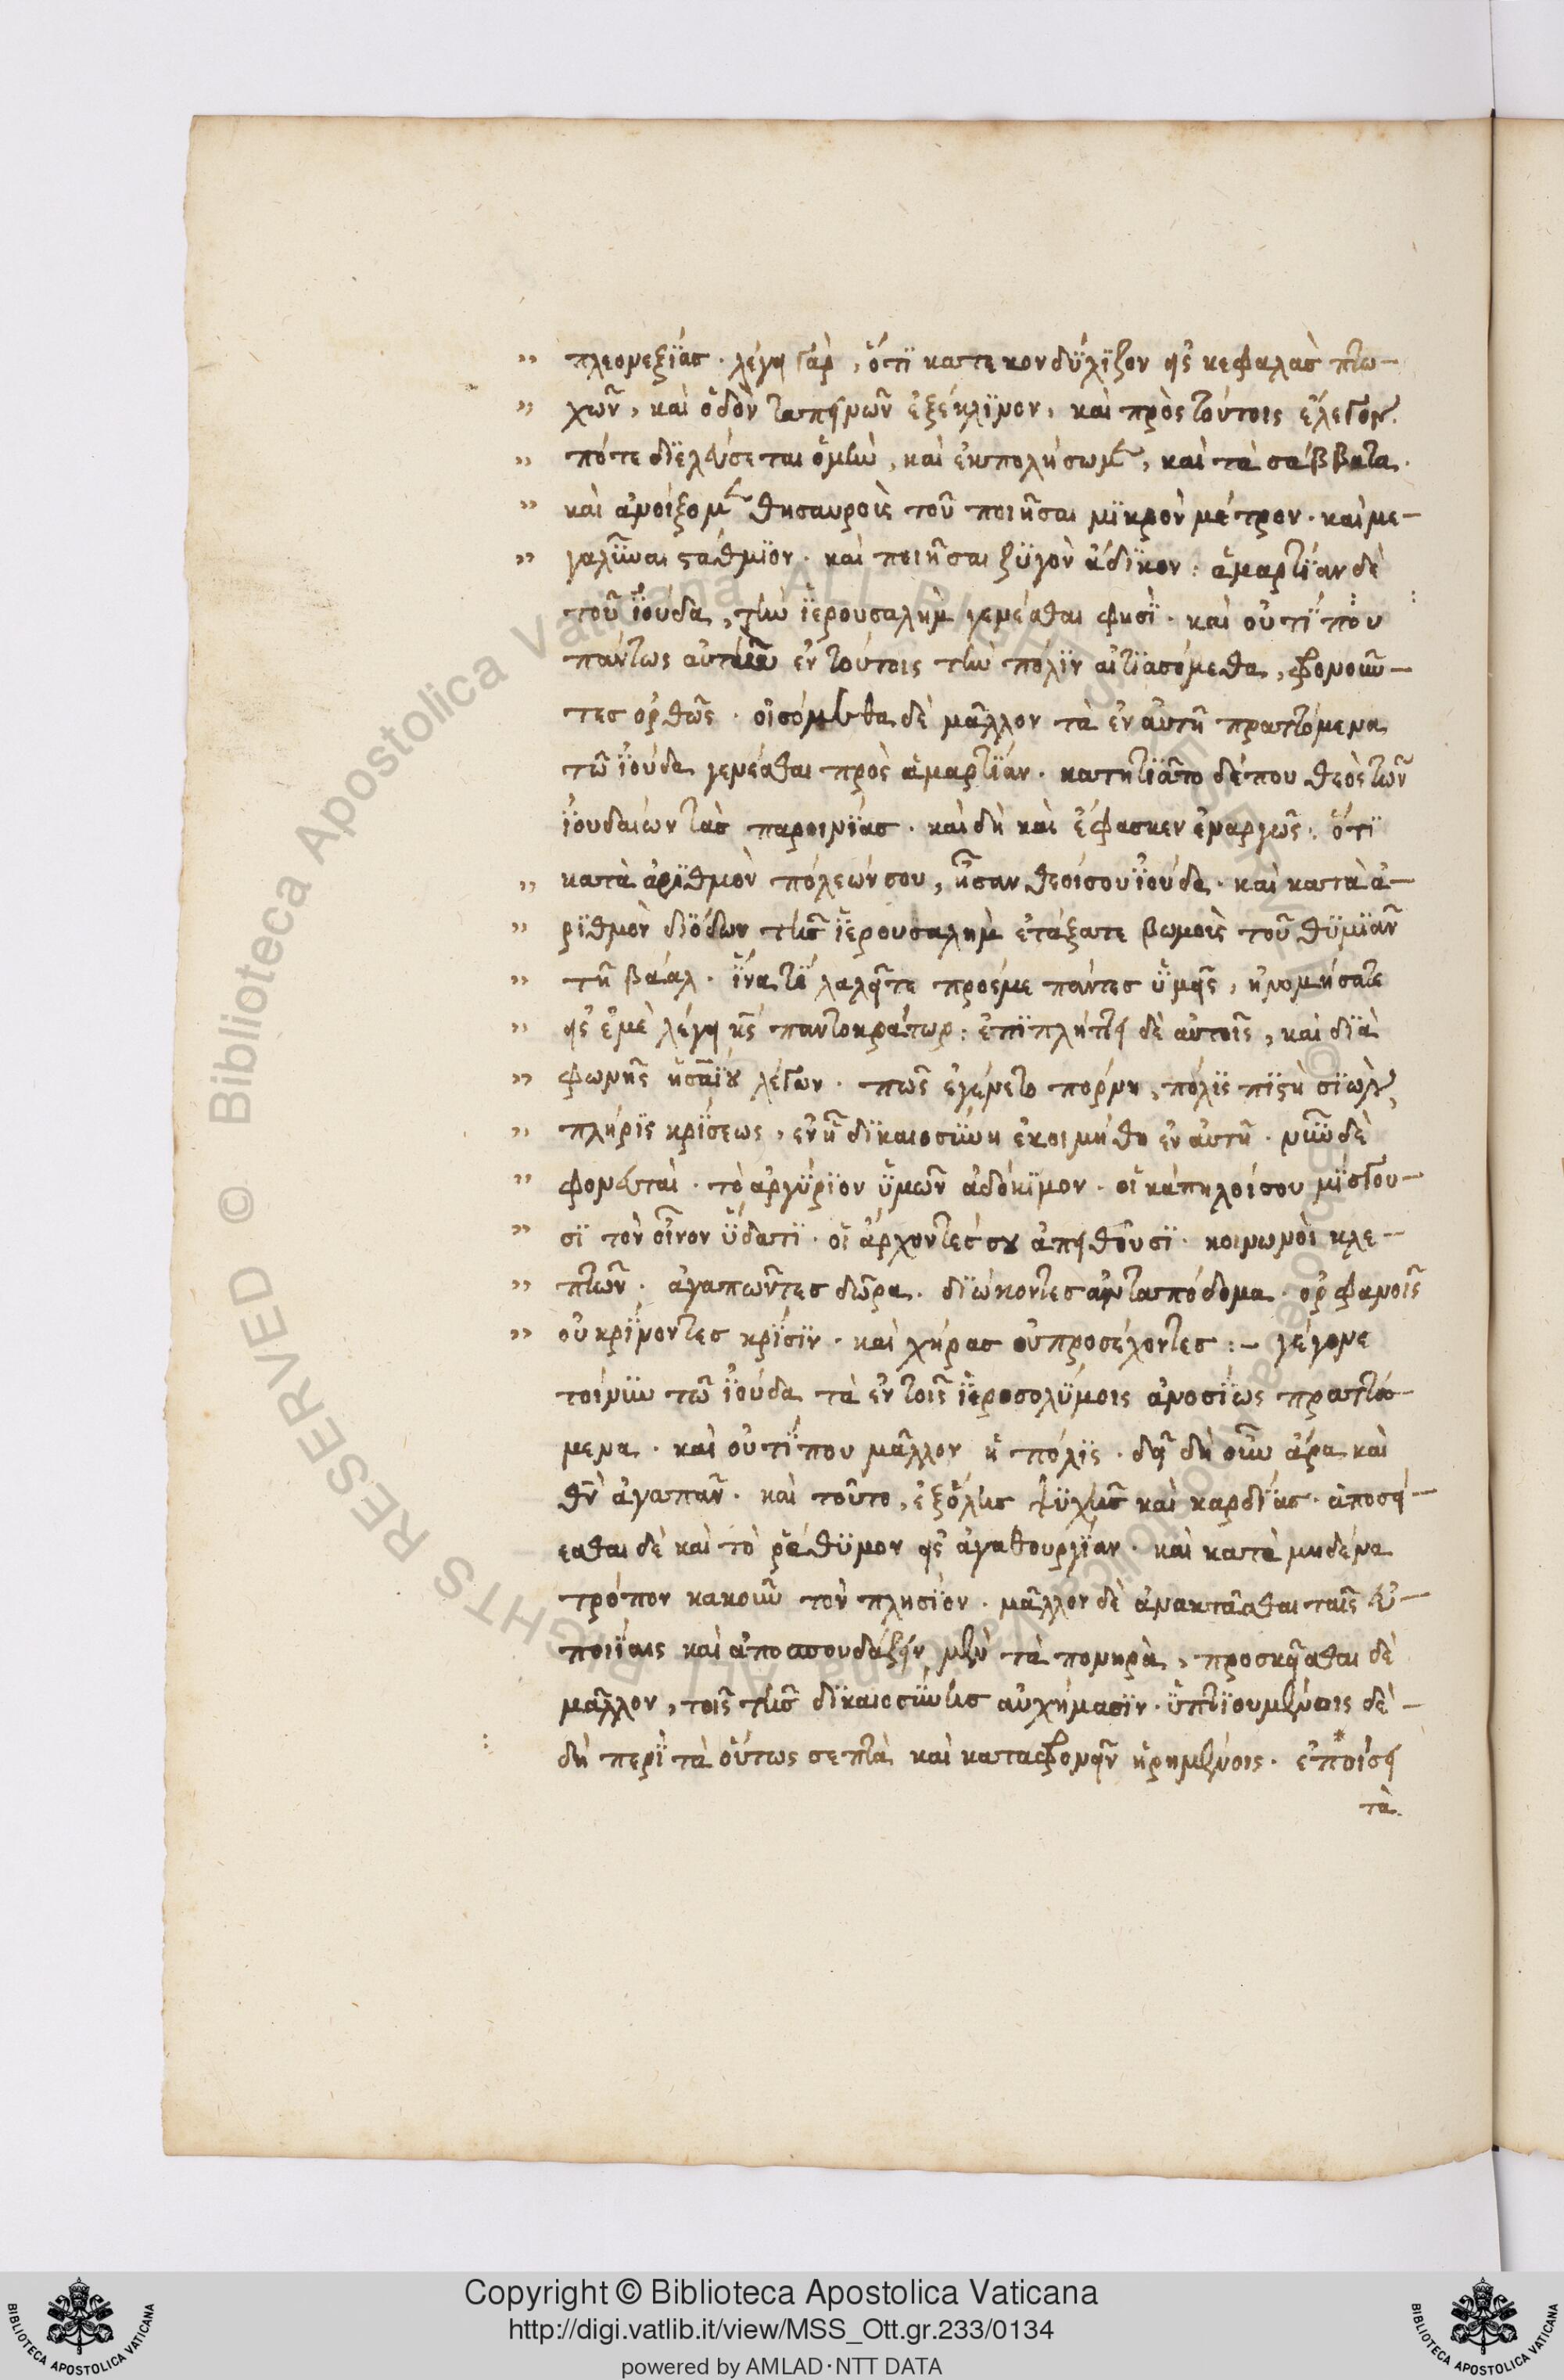 πλεονεξΐας · λέγει γὰρ, ὅτϊ κατεκονδΰλϊζον εἰς κεφαλὰς πτω-
χῶν, καὶ ὁδὸν ταπεινῶν ἐξέκλϊνον, καὶ πρὸς τούτοις ἔλεγον.
πότε διελεύσεται ὁ μὴν, καὶ ἐμπολήσωμεν, καὶ τὰ σάββατα.
καὶ ἀνοίξομεν θησαυροὺς τοῦ ποιῆσαι μϊκρὸν μέτρον · καὶ με-
γαλῦναι στάθμϊον · καὶ ποιῆσαι ζϋγὸν ἄδϊκον : ἁμαρτΐαν δὲ
τοῦ ἰούδα, τὴν ἱερουσαλὴμ γενέσθαι φησΐ · καὶ οὔτΐ που
πάντως ἐν τούτοις τὴν πόλϊν αἰτϊασόμεθα, φρονοῦν-
τες ὀρθῶς · οἰσόμεθα δὲ μᾶλλον τὰ ἐν αὐτῇ πραττόμενα
τῶ ἰούδα γενέσθαι πρὸς ἁμαρτΐαν · κατητϊᾶτο δέ που θεὸς τῶν
ἰουδαίων τὰς παροινΐας · καὶ δὴ καὶ ἔφασκεν ἐναργῶς : ὅτϊ
κατὰ ἀρϊθμὸν πόλεών σου, ἦσαν θεοί σου ἰούδα · καὶ κατὰ ἀ-
ρϊθμὸν διόδων τῆς ἱερουσαλὴμ ἐτάξατε βωμοὺς τοῦ θϋμϊᾶν
τῆ βάαλ · ἵνα τΐ λαλεῖτε πρός με πάντες ὑμεῖς, ἠνομήσατε
εἰς ἐμὲ λέγει κς παντοκράτωρ : ἐπϊπλήττει δὲ αὐτοῖς, καὶ δϊὰ
φωνῆς ἠσαΐου λέγων · πῶς ἐγένετο πόρνη, πόλϊς πϊστὴ σϊὼν,
πλήρϊς κρΐσεως, ἐν ἧ δϊκαιοσύνη ἐκοιμήθη ἐν αὐτῆ · νῦν δὲ
φονευταί · τὸ ἀργΰρϊον ὑμῶν ἀδόκϊμον · οἱ κάπηλοί σου μΐσγου-
σϊ τὸν οἶνον ὕδατϊ · οἱ ἄρχοντές σου ἀπειθοῦσϊ · κοινωνοὶ κλε-
πτῶν · ἀγαπῶντες δῶρα · δϊώκοντες ἀνταπόδομα · ὀρφανοῖς
οὐ κρΐνοντες κρΐσϊν · καὶ χήρας οὐ προσέχοντες :- γέγονε
τοίνυν τῶ ἰούδα τὰ ἐν τοῖς ἱεροσολΰμοις ἀνοσΐως πραττό-
μενα · καὶ οὔτΐ που μᾶλλον ἡ πόλϊς · δεῖ δὴ οὖν ἄρα καὶ
θν ἀγαπᾶν · καὶ τοῦτο, ἐξ ὅλης ψϋχῆς καὶ καρδΐας · ἀποσεί-
εσθαι δὲ καὶ τὸ ῥάθϋμον εἰς ἀγαθουργΐαν · καὶ κατὰ μηδένα
τρόπον κακοῦν τὸν πλησΐον · μᾶλλον δὲ ἀνακτᾶσθαι ταῖς εὐ-
ποιΐαις καὶ ἀποσπουδάζειν μὲν τὰ πονηρὰ, προσκεῖσθαι δὲ
μᾶλλον, τοῖς τῆς δϊκαιοσύνης αὐχήμασϊν · ὑπτϊουμένοις δὲ -
δὴ περϊ τὰ οὕτως σεπτὰ καὶ καταφρονεῖν ἡρημένοις · ἐποίσει
τὰ
Copyright © Biblioteca Apostolica Vaticana
http://digi.vatlib.it/view/MSS_Ott.gr.233/0134
powered by AMLAD·NTT DATA